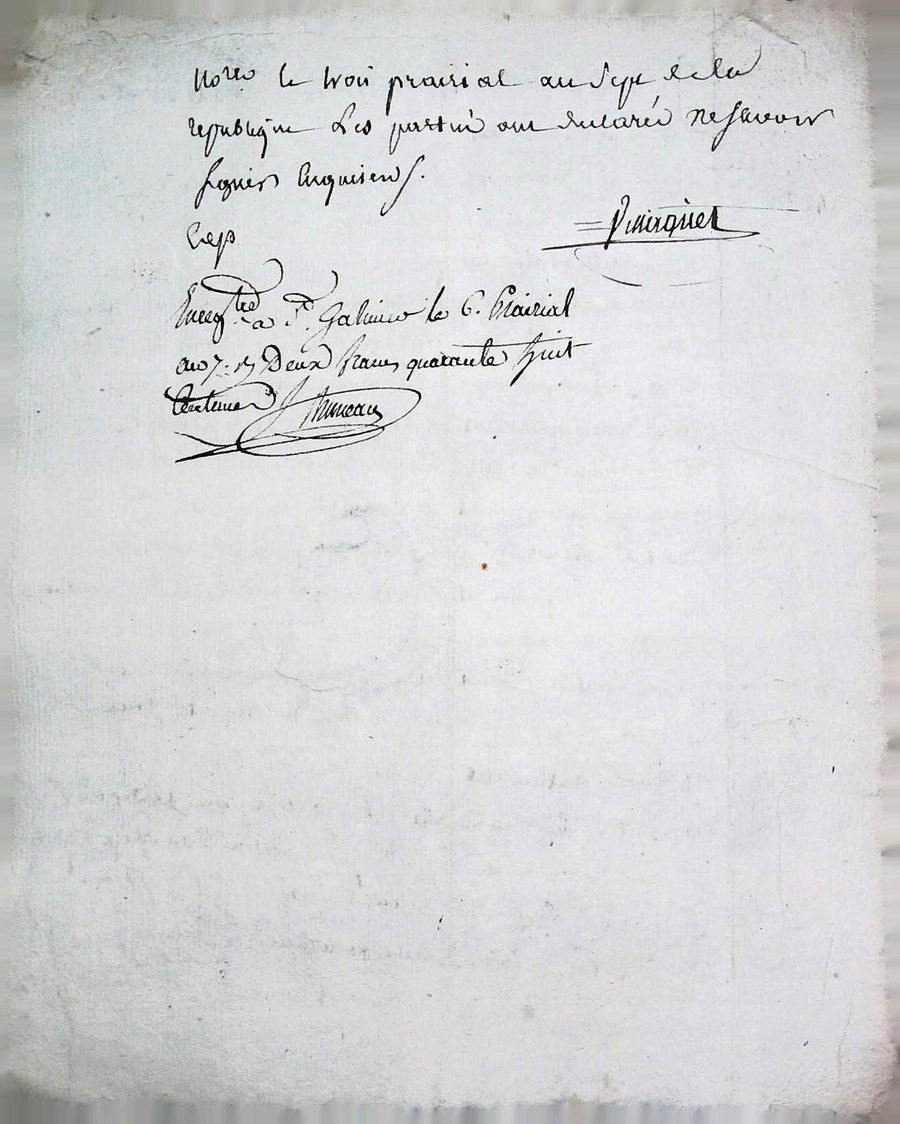 notre le trois prairial an Sept de la
republique Les partiés ont declarés ne Scavoir
Signer Enquisent S.
Cep
Enregtré a St. Galmier le 6. Prairial
an 7. Deux francs quarante huit
Centimes Bruneau